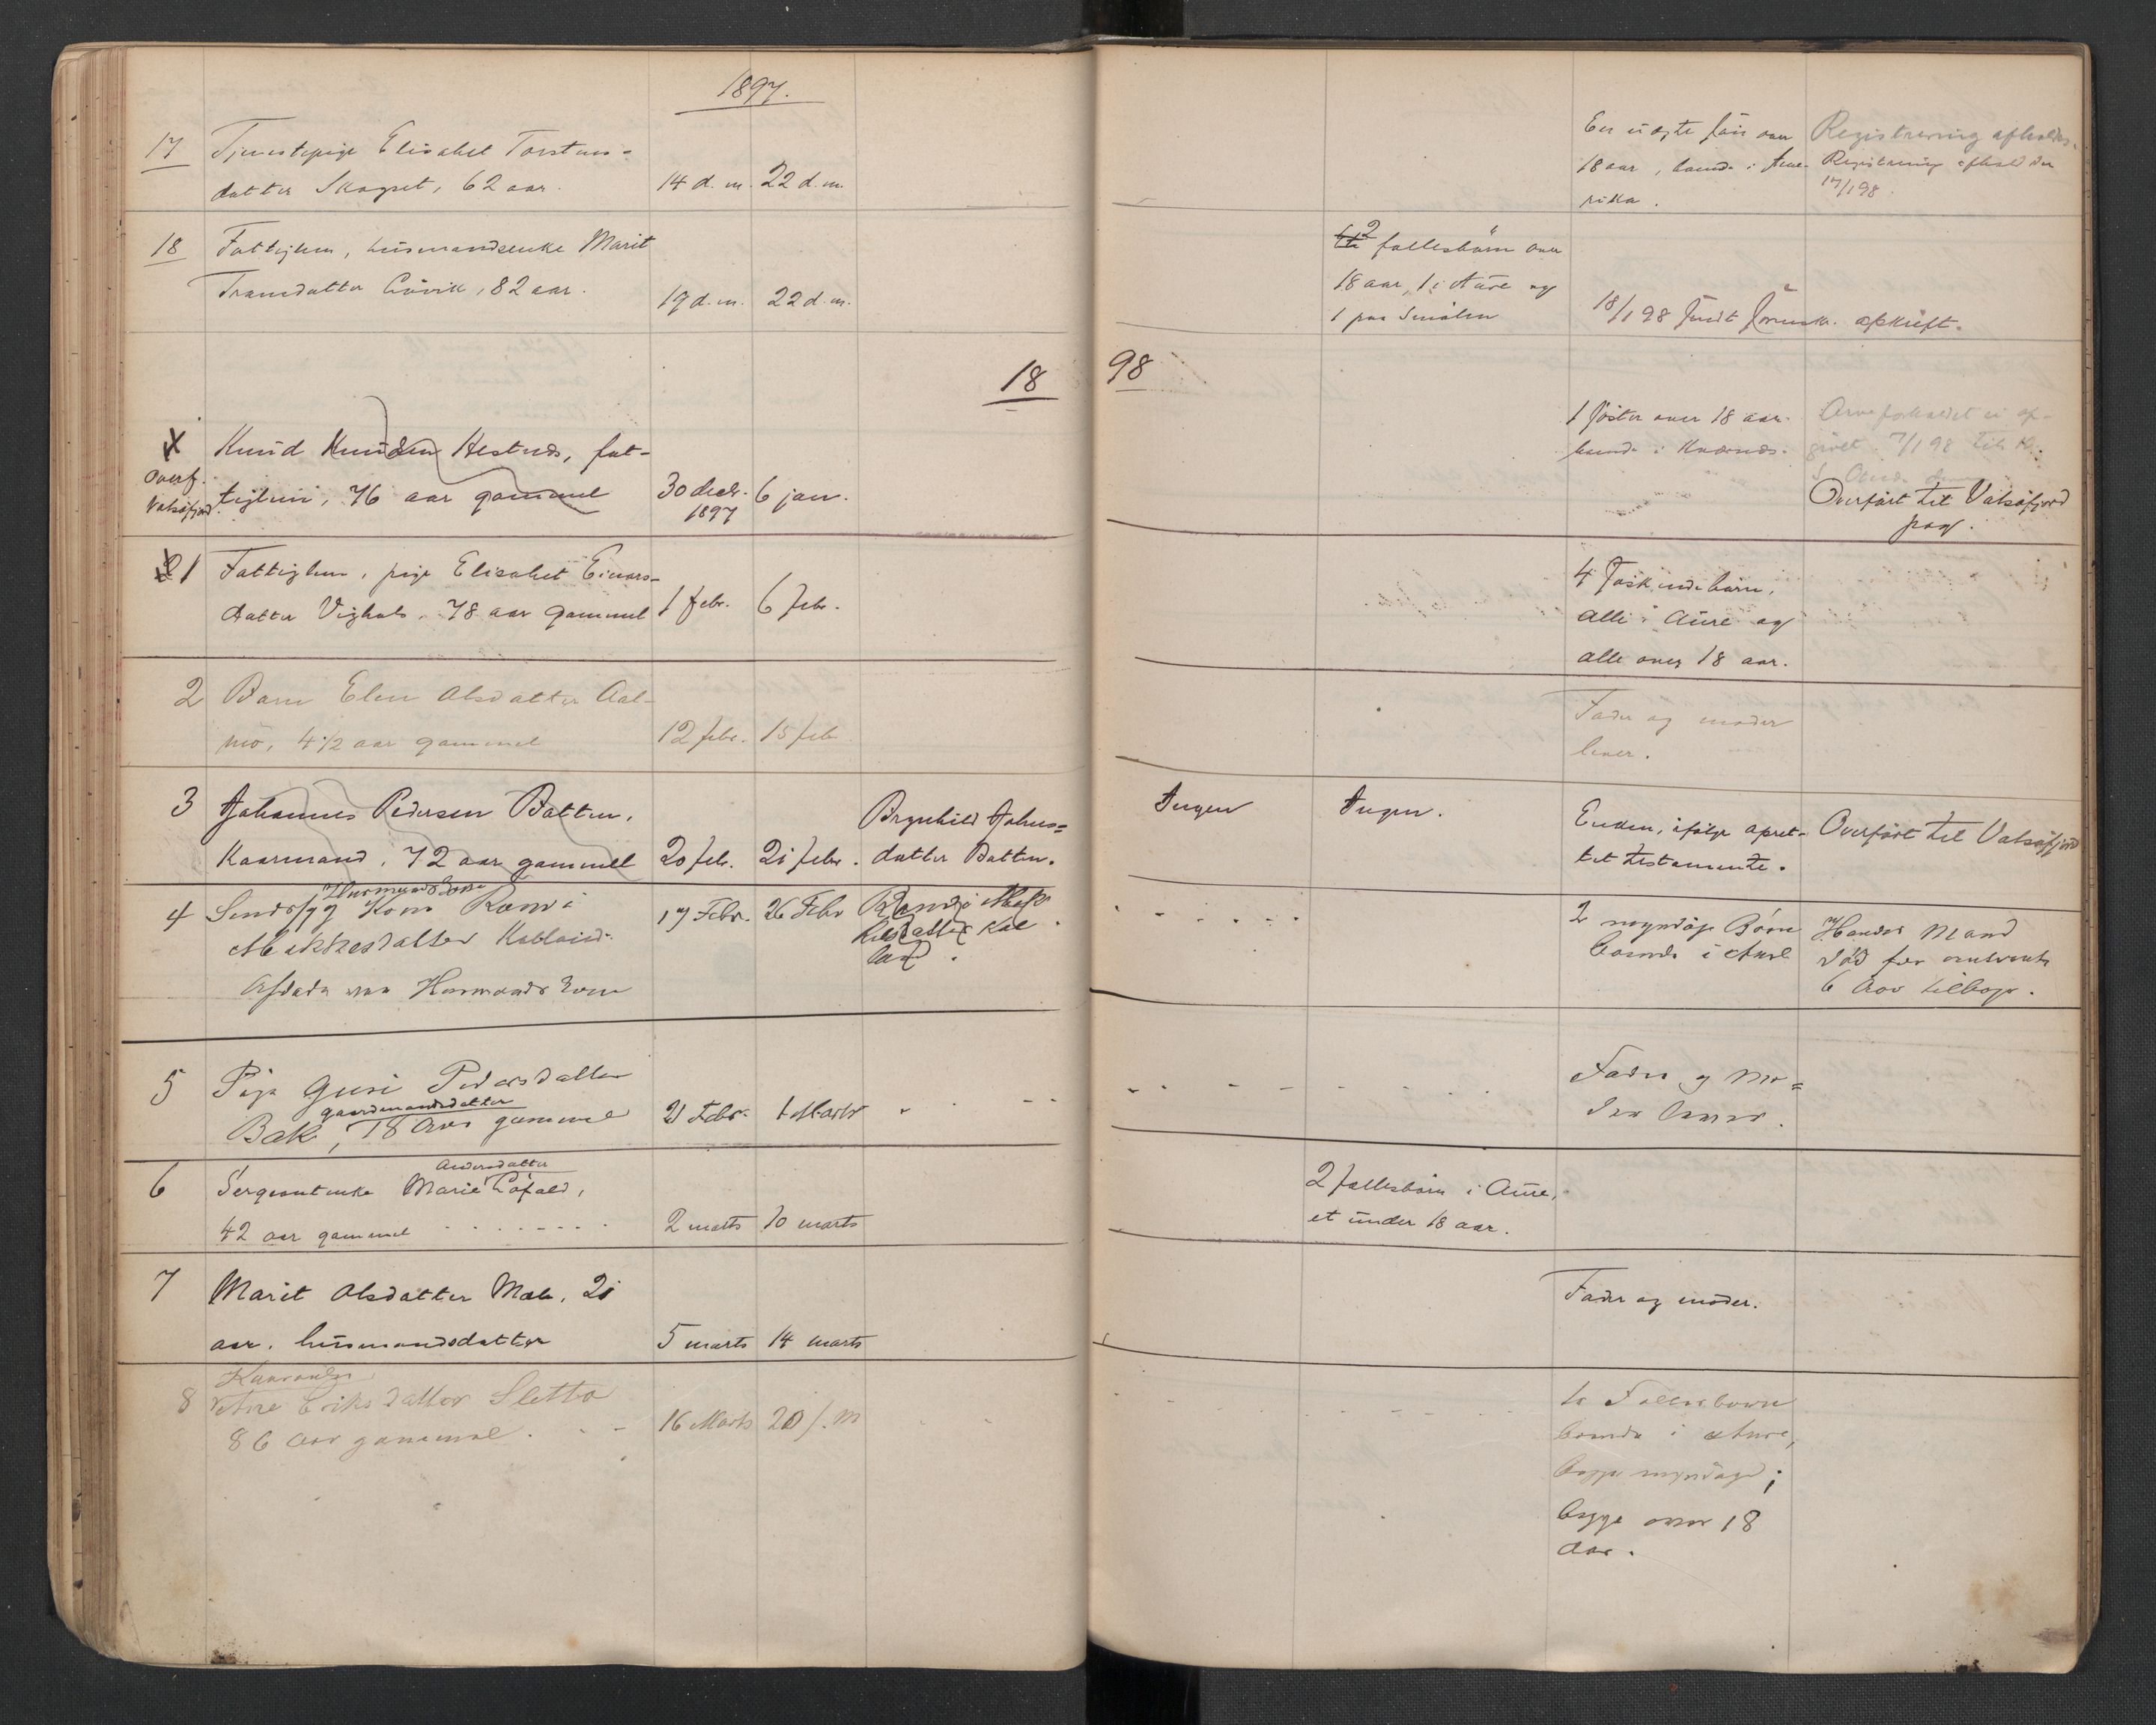 1897.
17 Tjenestepige Elisabet Torstens-
datter Skogset, 62 aar. 14 d. m. 22 d. m.
En uægte søn over
18 aar, boende i Ame-
rika.
Registrering afholdes.
Registrering afholdes den
17/1 98.
18 Fattiglem, husmandsenke Marit
datter 82 aar. 19 d. m. 22 d. m.
2 fællesbørn over
18 aar, 1 i Aure og
1 paa Smølen
18/1 98 sendt
1898
X Overf. Valsøfjord.
Knud Knudsen Hestnes, fat-
tiglem, 76 aar gammel 30 decbr. 1897 6 jan.
1 søster over 18 aar.
boende i Kvernes.
Arveforholdet ei op-
givet. 7/1 98 til
Overført til Valsøfjord
prog.
1 Fattiglem, pige Elisabet Einars-
datter Vighals, 78 aar gammel 1 febr. 6 febr.
4 søskendebørn,
alle i Aure og
alle over 18 aar.
2 Barn Elen Olsdatter Aal-
mo, 4 1/2 aar gammel 12 febr. 15 feb.
Fader og moder
lever.
3 Johannes Pedersen Botten,
Kaarmand, 72 aar gammel 20 feb. 21 febr.
Brynhild Johns-
datter Botten.
Ingen Ingen.
Enken, ifølge opret-
tet testamente.
Overført til Valsøfjord
4 Kone
datter
17 Febr. 26 Febr
2 myndige Børn
boende i Aure
Hendes Mand
død for omtrent
6 Aar tilbage.
5 Pige Guri Pedersdatter
gaardmandsdatter
Bak, 18 Aar gammel 21 Febr. 1 Marts
Fader og Mo-
der lever.
6 Sergeantenke Marie Andersdatter
42 aar gammel 2 marts 10 marts
2 fællesbørn i Aure,
et under 18 aar.
7 Marit Olsdatter Mæle, 21
aar, husmandsdatter 5 marts 14 marts
Fader og moder.
8 Eriksdatter Sletta
86 Aar gammel. 16 Marts 20/. M
to Fællesbørn
boende i Aure,
begge myndige;
begge over 18
Aar.